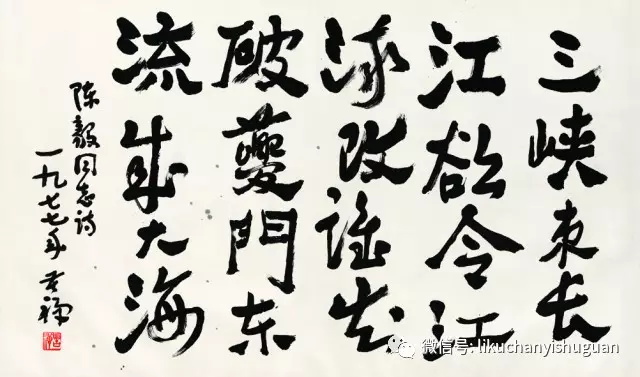 三峡束长
江欲令江
流改谁知
破夔門东
流成大海
陈毅同志诗
一九七七年 苦禅
微信号: likuchanyishuguan